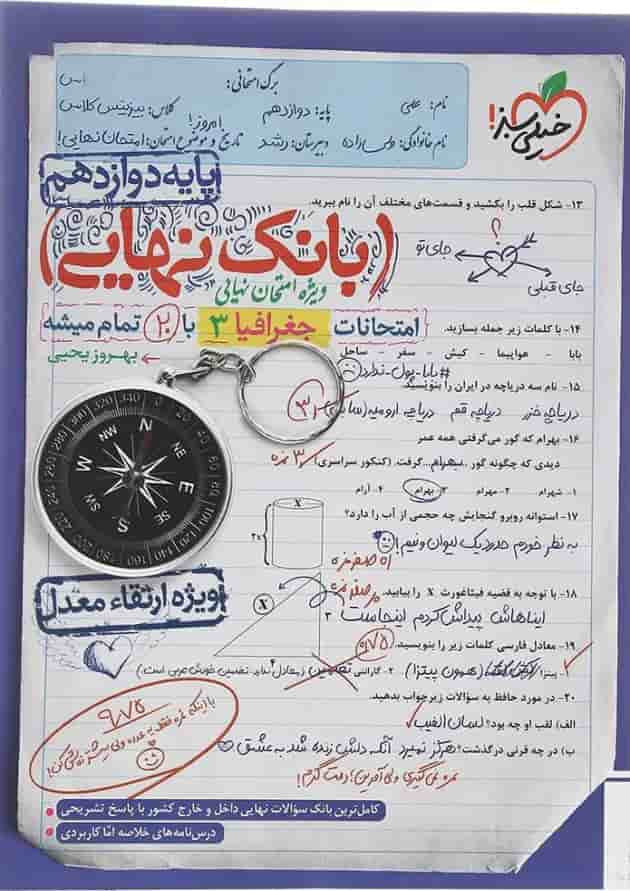 برگ امتحانی:
نام: علی
پایه: دوازدهم
کلاس: بیزینس کلاس
نام خانوادگی: ولی‌زاده
دبیرستان: رشد
تاریخ و موضوع امتحان: امتحان نهایی!
امروز!
خیلی سبز!
پایه دوازدهم
(بانک نهایی)
ویژه امتحان نهایی
امتحانات جغرافیا ۳ با ۲۰ تمام میشه
بهروز یحیی
۱۳- شکل قلب را بکشید و قسمت‌های مختلف آن را نام ببرید.
؟
جای تو
جای قبلی
۱۴- با کلمات زیر جمله بسازید.
بابا - هواپیما - کیش - سفر - ساحل
#بابا-پول-ندارد
۱۵- نام سه دریاچه در ایران را بنویسید.
دریاچه خزر دریاچه قم دریاچه ارومیه
۱۶- بهرام که گور می‌گرفتی همه عمر
دیدی که چگونه گور ..بهرام.. گرفت. (کنکور سراسری)
۱- شهرام ۲- مهرام ۳- بهرام ۴- آرام
۱۷- استوانه روبرو گنجایش چه حجمی از آب را دارد؟
به نظر خودم حدود یک لیوان و نیم!
X
2x
۱۸- با توجه به قضیه فیثاغورث X را بیابید.
ایناهاش پیداش کردم اینجاست
X
۳
۱۹- معادل فارسی کلمات زیر را بنویسید.
۱- پیتزا (همون پیتزا) ۲- گارانتی تضمین
۲۰- در مورد حافظ به سؤالات زیر جواب بدهید.
الف) لقب او چه بود؟ لسان الغیب
ب) در چه قرنی درگذشت؟ هرگز نمیرد آنکه دلش زنده شد به عشق
نمره نمی‌گیری ولی آفرین! دمت گرم!
ویژه ارتقاء معدل
۹/۷۵
N
NE
E
SE
S
SW
W
NW
کامل‌ترین بانک سؤالات نهایی داخل و خارج کشور با پاسخ تشریحی
درس‌نامه‌های خلاصه امّا کاربردی